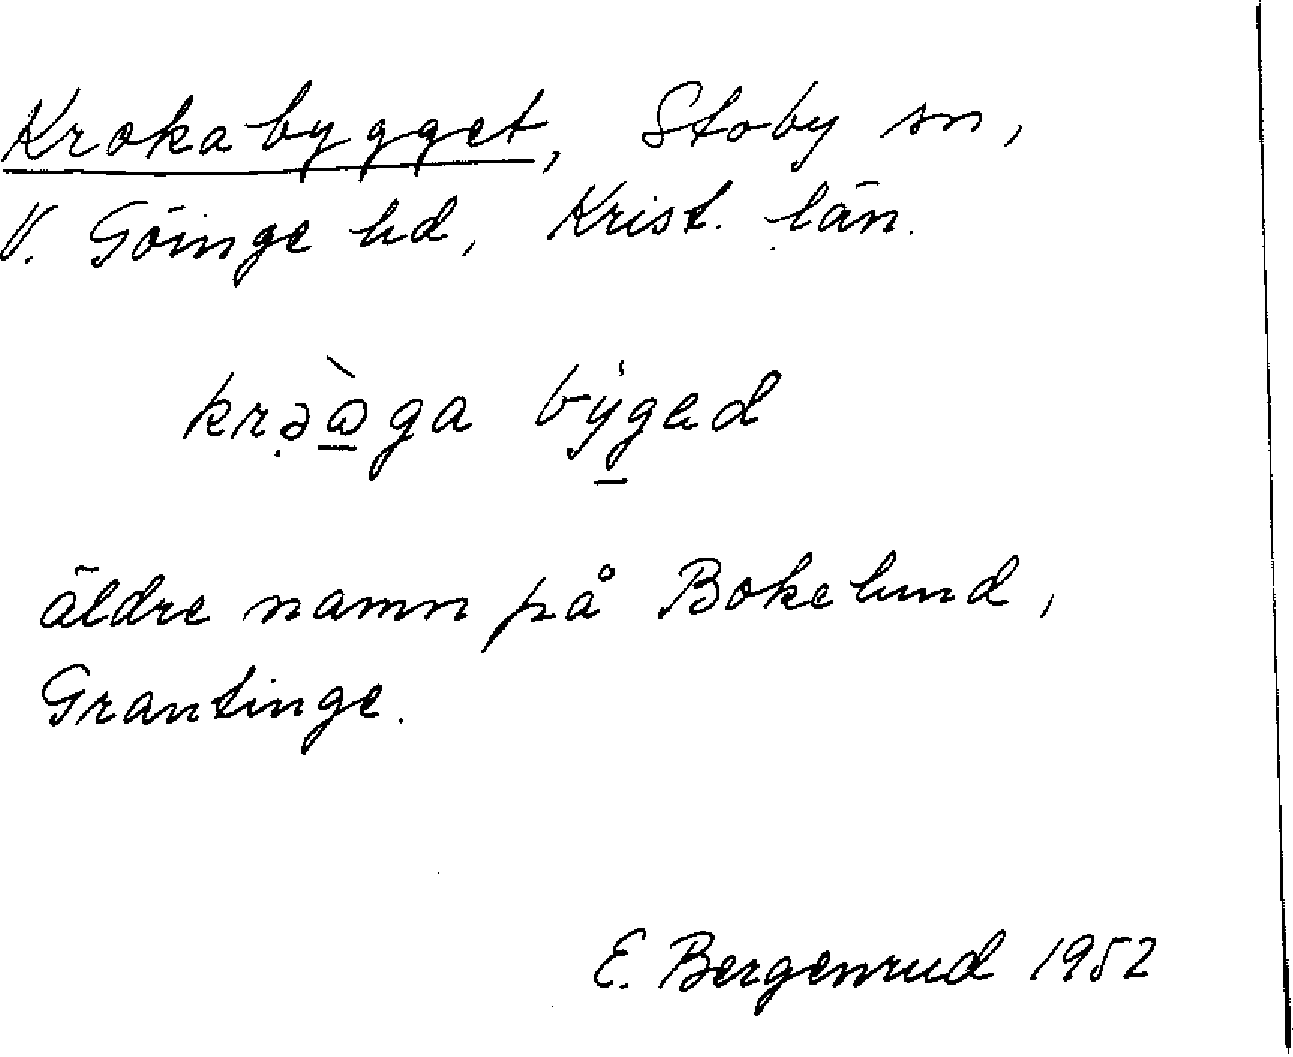 Krokabygget, Stoby sn,
V. Göinge hd, Krist. län.
krə̣ὼ̱ga bý̱gad
äldre namn på Bokelund,
Grantinge.
E. Bergenrud 1952